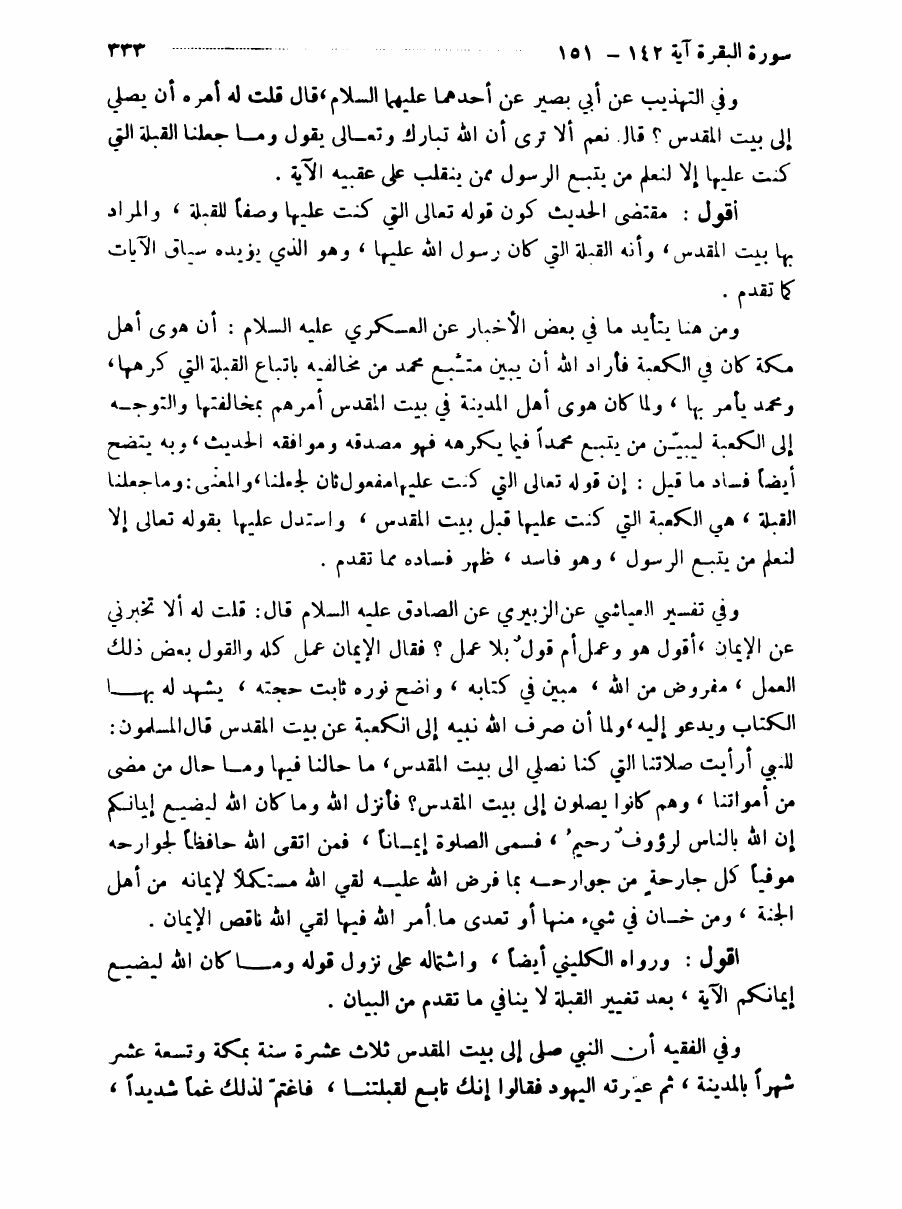 سورة البقرة آية ١٤٢ – ١٥١ ٣٣٣
وفي التهذيب عن أبي بصير عن أحدهما عليهما السلام، قال قلت له أمره أن يصلي
إلى بيت المقدس ؟ قال. نعم ألا ترى أن الله تبارك وتعـالى يقول ومـا جعلنا القبلة التي
كنت عليها إلا لنعلم من يتبع الرسول ممن ينقلب على عقبيه الآية .
أقول : مقتضى الحديث كون قوله تعالى التي كنت عليها وصفاً للقبلة ، والمراد
بها بيت المقدس ، وأنه القبلة التي كان رسول الله عليها ، وهو الذي يؤيده سياق الآيات
كما تقدم .
ومن هنا يتأيد ما في بعض الأخبار عن العسكري عليه السلام : أن هوى أهل
مكة كان في الكعبة فأراد الله أن يبين متـّبع محمد من مخالفيه باتباع القبلة التي كرهها ،
ومحمد يأمر بها ، ولما كان هوى أهل المدينة في بيت المقدس أمرهم بمخالفتها والتوجـه
إلى الكعبة ليبيّـن من يتبع محمداً فيما يكرهه فهو مصدقه وموافقه الحديث ، وبه يتضح
أيضاً فساد ما قيل : إن قوله تعالى التي كنت عليها مفعول ثان لجعلنا ، والمعنى : وما جعلنا
القبلة ، هي الكعبة التي كنت عليها قبل بيت المقدس ، واستدل عليها بقوله تعالى إلا
لنعلم من يتبع الرسول ، وهو فاسد ، ظهر فساده مما تقدم .
وفي تفسير العياشي عن الزبيري عن الصادق عليه السلام قال : قلت له ألا تخبرني
عن الإيمان ، أقول هو وعمل أم قولٌ بلا عمل ؟ فقال الإيمان عمل كله والقول بعض ذلك
العمل ، مفروض من الله ، مبين في كتابه ، واضح نوره ثابت حجته ، يشهد له بهـا
الكتاب ويدعو إليه ، ولما أن صرف الله نبيه إلى الكعبة عن بيت المقدس قال المسلمون :
للنبي أرأيت صلاتنا التي كنا نصلي الى بيت المقدس ، ما حالنا فيها ومـا حال من مضى
من أمواتنا ، وهم كانوا يصلون إلى بيت المقدس ؟ فأنزل الله وما كان الله ليضيع إيمانكم
إن الله بالناس لرؤوفٌ رحيمٌ ، فسمى الصلوة إيمـاناً ، فمن اتقى الله حافظاً لجوارحه
موفياً كل جارحةٍ من جوارحـه بما فرض الله عليـه لقي الله مستكملاً لإيمانه من أهل
الجنة ، ومن خـان في شيء منها أو تعدى ما أمر الله فيها لقي الله ناقص الإيمان .
اقول : ورواه الكليني أيضاً ، واشتماله على نزول قوله ومـا كان الله ليضيـع
إيمانكم الآية ، بعد تغيير القبلة لا ينافي ما تقدم من البيان .
وفي الفقيه أن النبي صلى إلى بيت المقدس ثلاث عشرة سنة بمكة وتسعة عشر
شهراً بالمدينة ، ثم عيّرته اليهود فقالوا إنك تابع لقبلتنـا ، فاغتمّ لذلك غماً شديداً ،